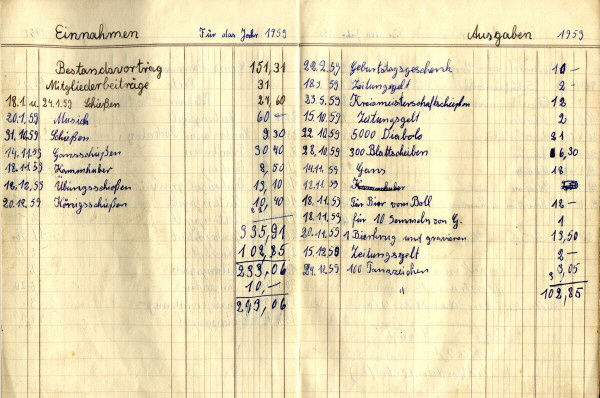 Einnahmen Für das Jahr 1959
Bestandsvortrag 151,31
Mitgliederbeiträge 31
18.1. u. 24.1.59 Schießen 27,60
20.1.59 Musich 60 —
31.10.59 Schießen 9 30
14.11.59 Gansschießen 30 40
18.11.59 Kammhuber 2,50
12.12.59 Übungsschießen 13,10
20.12.59 Königsschießen 10,40
335,91
102,85
233,06
10,—
243,06
Ausgaben 1959
22.2.59 Geburtstagsgeschenk 10 —
18.3.59 Zeitungsgelt 2 -
23.5.59 Kreismeisterschaft 12
15.9.59 Zeitungsgelt 2
22.10.59 5000 Diabolo 21
28.10.59 300 Blattscheiben 6,30
14.11.59 Gans 18
18.11.59 Für Bier vom Boll 12 —
18.11.59 für 10 Semmeln von G. 1
20.11.59 1 Bierkrug und gravieren 13,50
15.12.59 Zeitungsgelt 2 —
29.12.59 100 3,05
"
102,85